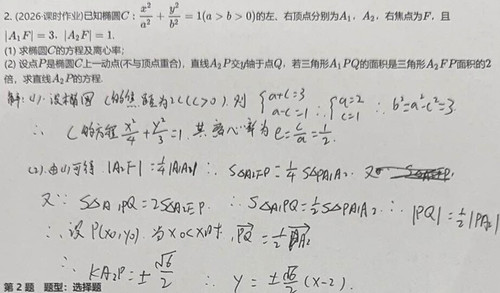 2. (2026·课时作业)已知椭圆C: x²/a² + y²/b² = 1(a > b > 0)的左、右顶点分别为A₁, A₂, 右焦点为F, 且
|A₁F| = 3, |A₂F| = 1.
(1) 求椭圆C的方程及离心率;
(2) 设点P是椭圆C上一动点(不与顶点重合), 直线A₂P交y轴于点Q, 若三角形A₁PQ的面积是三角形A₂FP面积的2
倍, 求直线A₂P的方程.
解: (1). 设椭圆C的焦距为2c(c>0). 则 {a+c=3 a-c=1 ∴ {a=2 c=1 ∴ b²=a²-c²=3.
∴ C的方程 x²/4 + y²/3 =1. 其离心率为 e= c/a = 1/2.
(2). 由(1)可得 |A₂F| = 1/4|A₁A₂| ∴ S△A₂FP = 1/4 S△PA₁A₂.
又∵ S△A₁PQ = 2S△A₂FP. ∴ S△A₁PQ = 1/2 S△PA₁A₂ ∴ |PQ| = 1/2|PA₂|
∴ 设P(x₀, y₀). 当x₀<x₂时, PQ = 1/2
∴ KA₂P = ± √6/2 ∴ y = ± √6/2 (x-2).
第 2 题 题型: 选择题